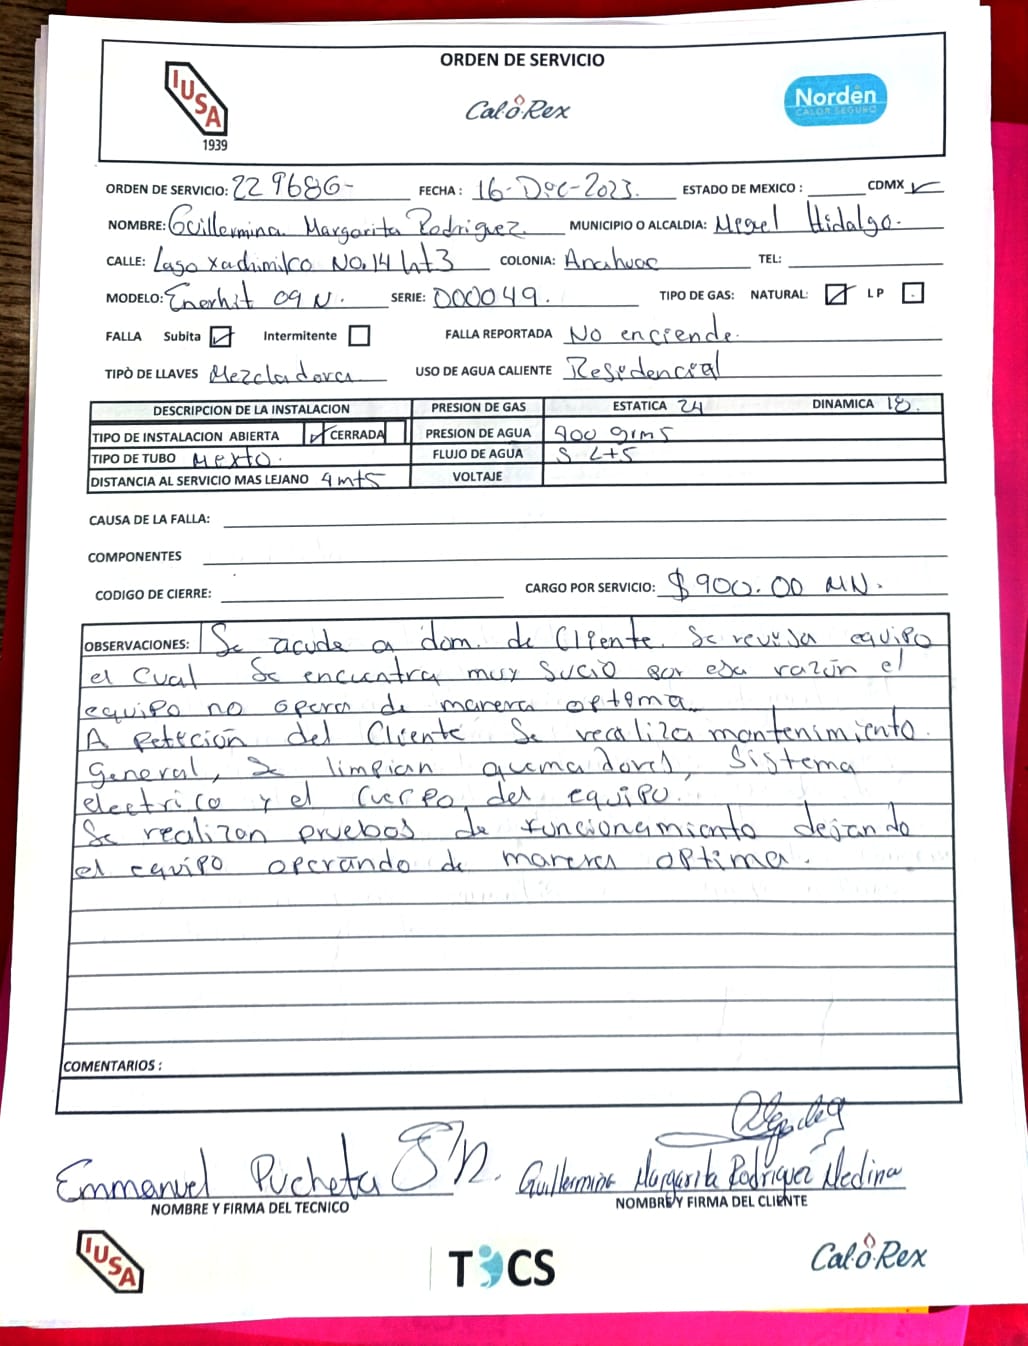 ORDEN DE SERVICIO
IUSA
1939
Cal-o-Rex
Nordën
CALOR SEGURO
ORDEN DE SERVICIO: 229686- FECHA : 16-Dic-2023. ESTADO DE MEXICO : CDMX
NOMBRE: Guillermina Margarita Rodriguez MUNICIPIO O ALCALDIA: Miguel Hidalgo.
CALLE: Lago Xochimilco No.14 Int3 COLONIA: Anahuac TEL:
MODELO: Enerhit 09 N. SERIE: D00049. TIPO DE GAS: NATURAL: L P
FALLA Subita Intermitente FALLA REPORTADA No enciende.
TIPÒ DE LLAVES Mezcladora USO DE AGUA CALIENTE Residencial
DESCRIPCION DE LA INSTALACION PRESION DE GAS ESTATICA 24 DINAMICA 18.
TIPO DE INSTALACION ABIERTA CERRADA PRESION DE AGUA 900 grms
TIPO DE TUBO Mixto. FLUJO DE AGUA 5 Lts
DISTANCIA AL SERVICIO MAS LEJANO 4 mts VOLTAJE
CAUSA DE LA FALLA:
COMPONENTES
CODIGO DE CIERRE: CARGO POR SERVICIO: $900.00 MN.
OBSERVACIONES: Se acude a dom. de Cliente. Se revisa equipo
el cual se encuentra muy sucio por esa razón el
equipo no opera de manera optima
A petición del Cliente Se realiza mantenimiento
General, se limpian quemadores, Sistema
electrico y el cuerpo del equipo.
Se realizan pruebas de funcionamiento dejando
el equipo operando de manera optima.
COMENTARIOS :
Emmanuel Pucheta
Guillermina Margarita Rodríguez Medina
NOMBRE Y FIRMA DEL TECNICO
NOMBRE Y FIRMA DEL CLIENTE
IUSA
TOCS
Cal-o-Rex